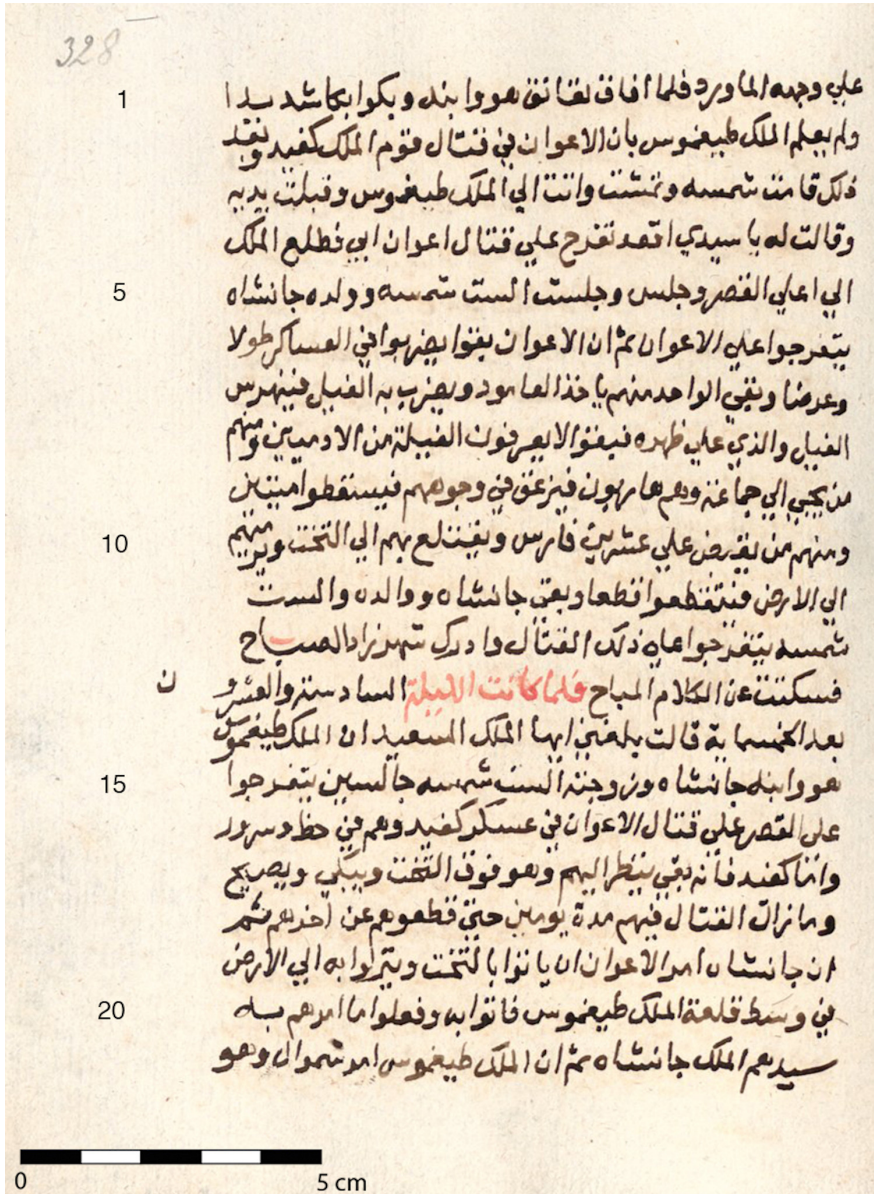 328
1 علي وجهه الماورد فلما افاق تعانق هووابنه وبكوا بكا شديدا
ولم يعلم الملك طيغموس بان الاعوان في قتال قوم الملك كفيد وبعد
ذلك قامت شمسه وتمشت واتت الي الملك طيغموس وقبلت يديه
وقالت له يا سيدي اقعد تفرج علي قتال اعوان ابي فطلع الملك
5 الي اعلي القصر وجلس وجلست الست شمسه وولده جانشاه
يتفرجوا علي الاعوان ثم ان الاعوان بقوا يضربوا في العساكر طولا
وعرضا وبقي الواحد منهم ياخذ العامود ويضرب به الفيل فينهرس
الفيل والذي علي ظهره فبقوا لا يعرفون الفيلة من الادميين ومنهم
من يجي الي جماعة وهم هاربون فيزعق في وجوههم فيسقطوا ميتين
10 ومنهم من يقبض علي عشرين فارس ويقتلع بهم الي التخت ويرميهم
الي الارض فيتقطعوا قطعا وبقي جانشاه ووالده والست
شمسه يتفرجوا علي ذلك القتال وادرك شهرزاد الصباح
فسكتت عن الكلام المباح فلما كانت الليلة السادسة والعشرو
ن
بعد الخمسماية قالت بلغني ايها الملك السعيد ان الملك طيغموس
15 هووابنه جانشاه وزوجته الست شمسه جالسين يتفرجوا
علي القصر علي قتال الاعوان في عسكر كفيد وهم في حظ وسرور
واما كفند فانه بقي ينظر اليهم وهو فوق التخت ويبكي ويصيح
وما زال القتال فيهم مدة يومين حتي قطعوهم عن اخرهم ثم
ان جانشاه امر الاعوان ان ياتوا بالتخت وينزلوا به الي الارض
20 في وسط قلعة الملك طيغموس فاتوا به وفعلوا ما امرهم به
سيدهم الملك جانشاه ثم ان الملك طيغموس امر شموال وهو
0 5 cm